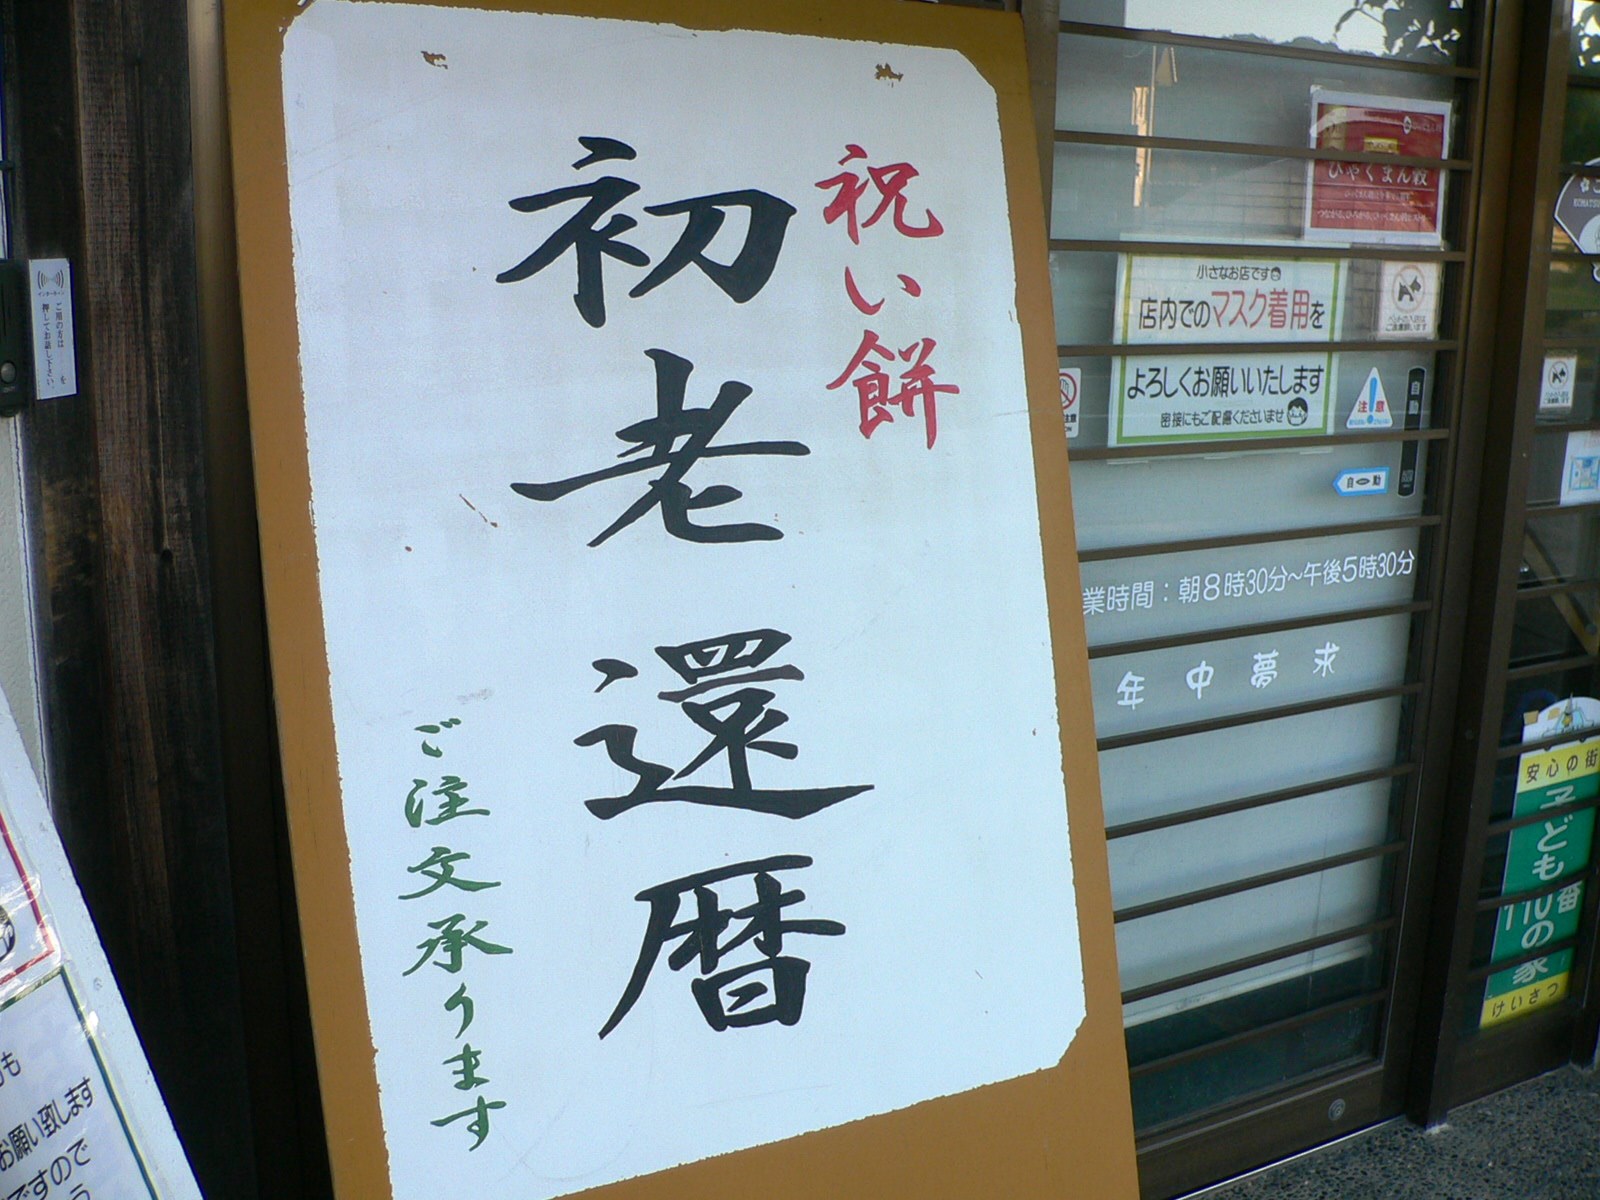 祝い餅
初老還暦
ご注文承ります
ご用の方は
押してお話し下さい。
ひゃくまん穀
小さなお店です
店内でのマスク着用を
よろしくお願いいたします
密接にもご配慮くださいませ
注意
自動
自動
業時間:朝8時30分~午後5時30分
年中夢求
安心の街
子ども110番の家
けいさつ
も
お願い致します
ですので